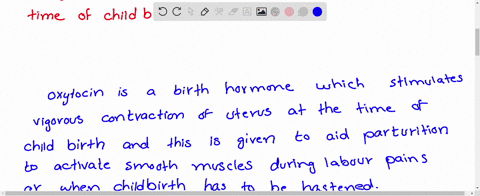 time of child b
oxytocin is a birth hormone which stimulates
vigorous contraction of uterus at the time of
child birth and this is given to aid parturition
to activate smooth muscles during labour pains
or when childbirth has to be hastened.